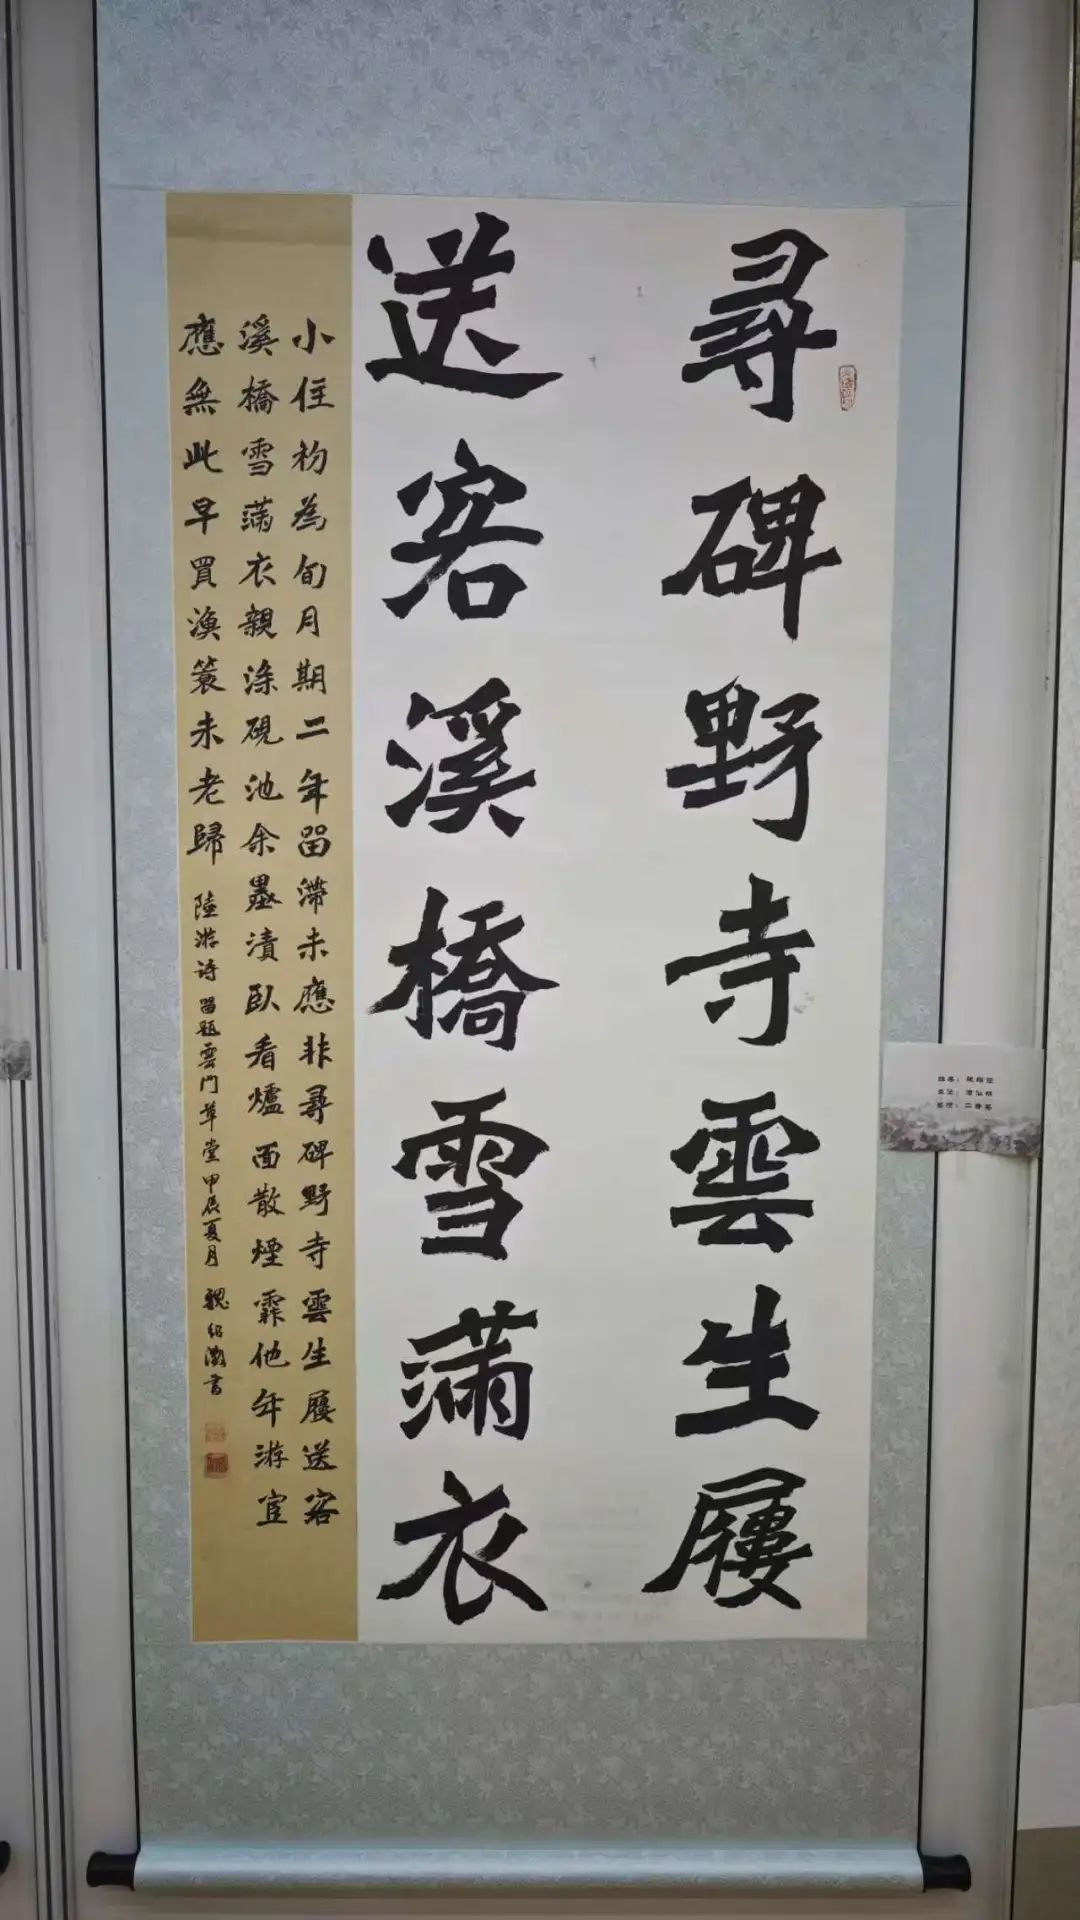 尋碑野寺雲生屨
送客溪橋雪滿衣
小住初為旬月期二年留滯未應非尋碑野寺雲生屨送客
溪橋雪滿衣親滌硯池余墨漬臥看爐面散煙霏他年游宦
應無此早買漁蓑未老歸 陸游诗 留題雲門草堂 甲辰夏月 魏紹 書